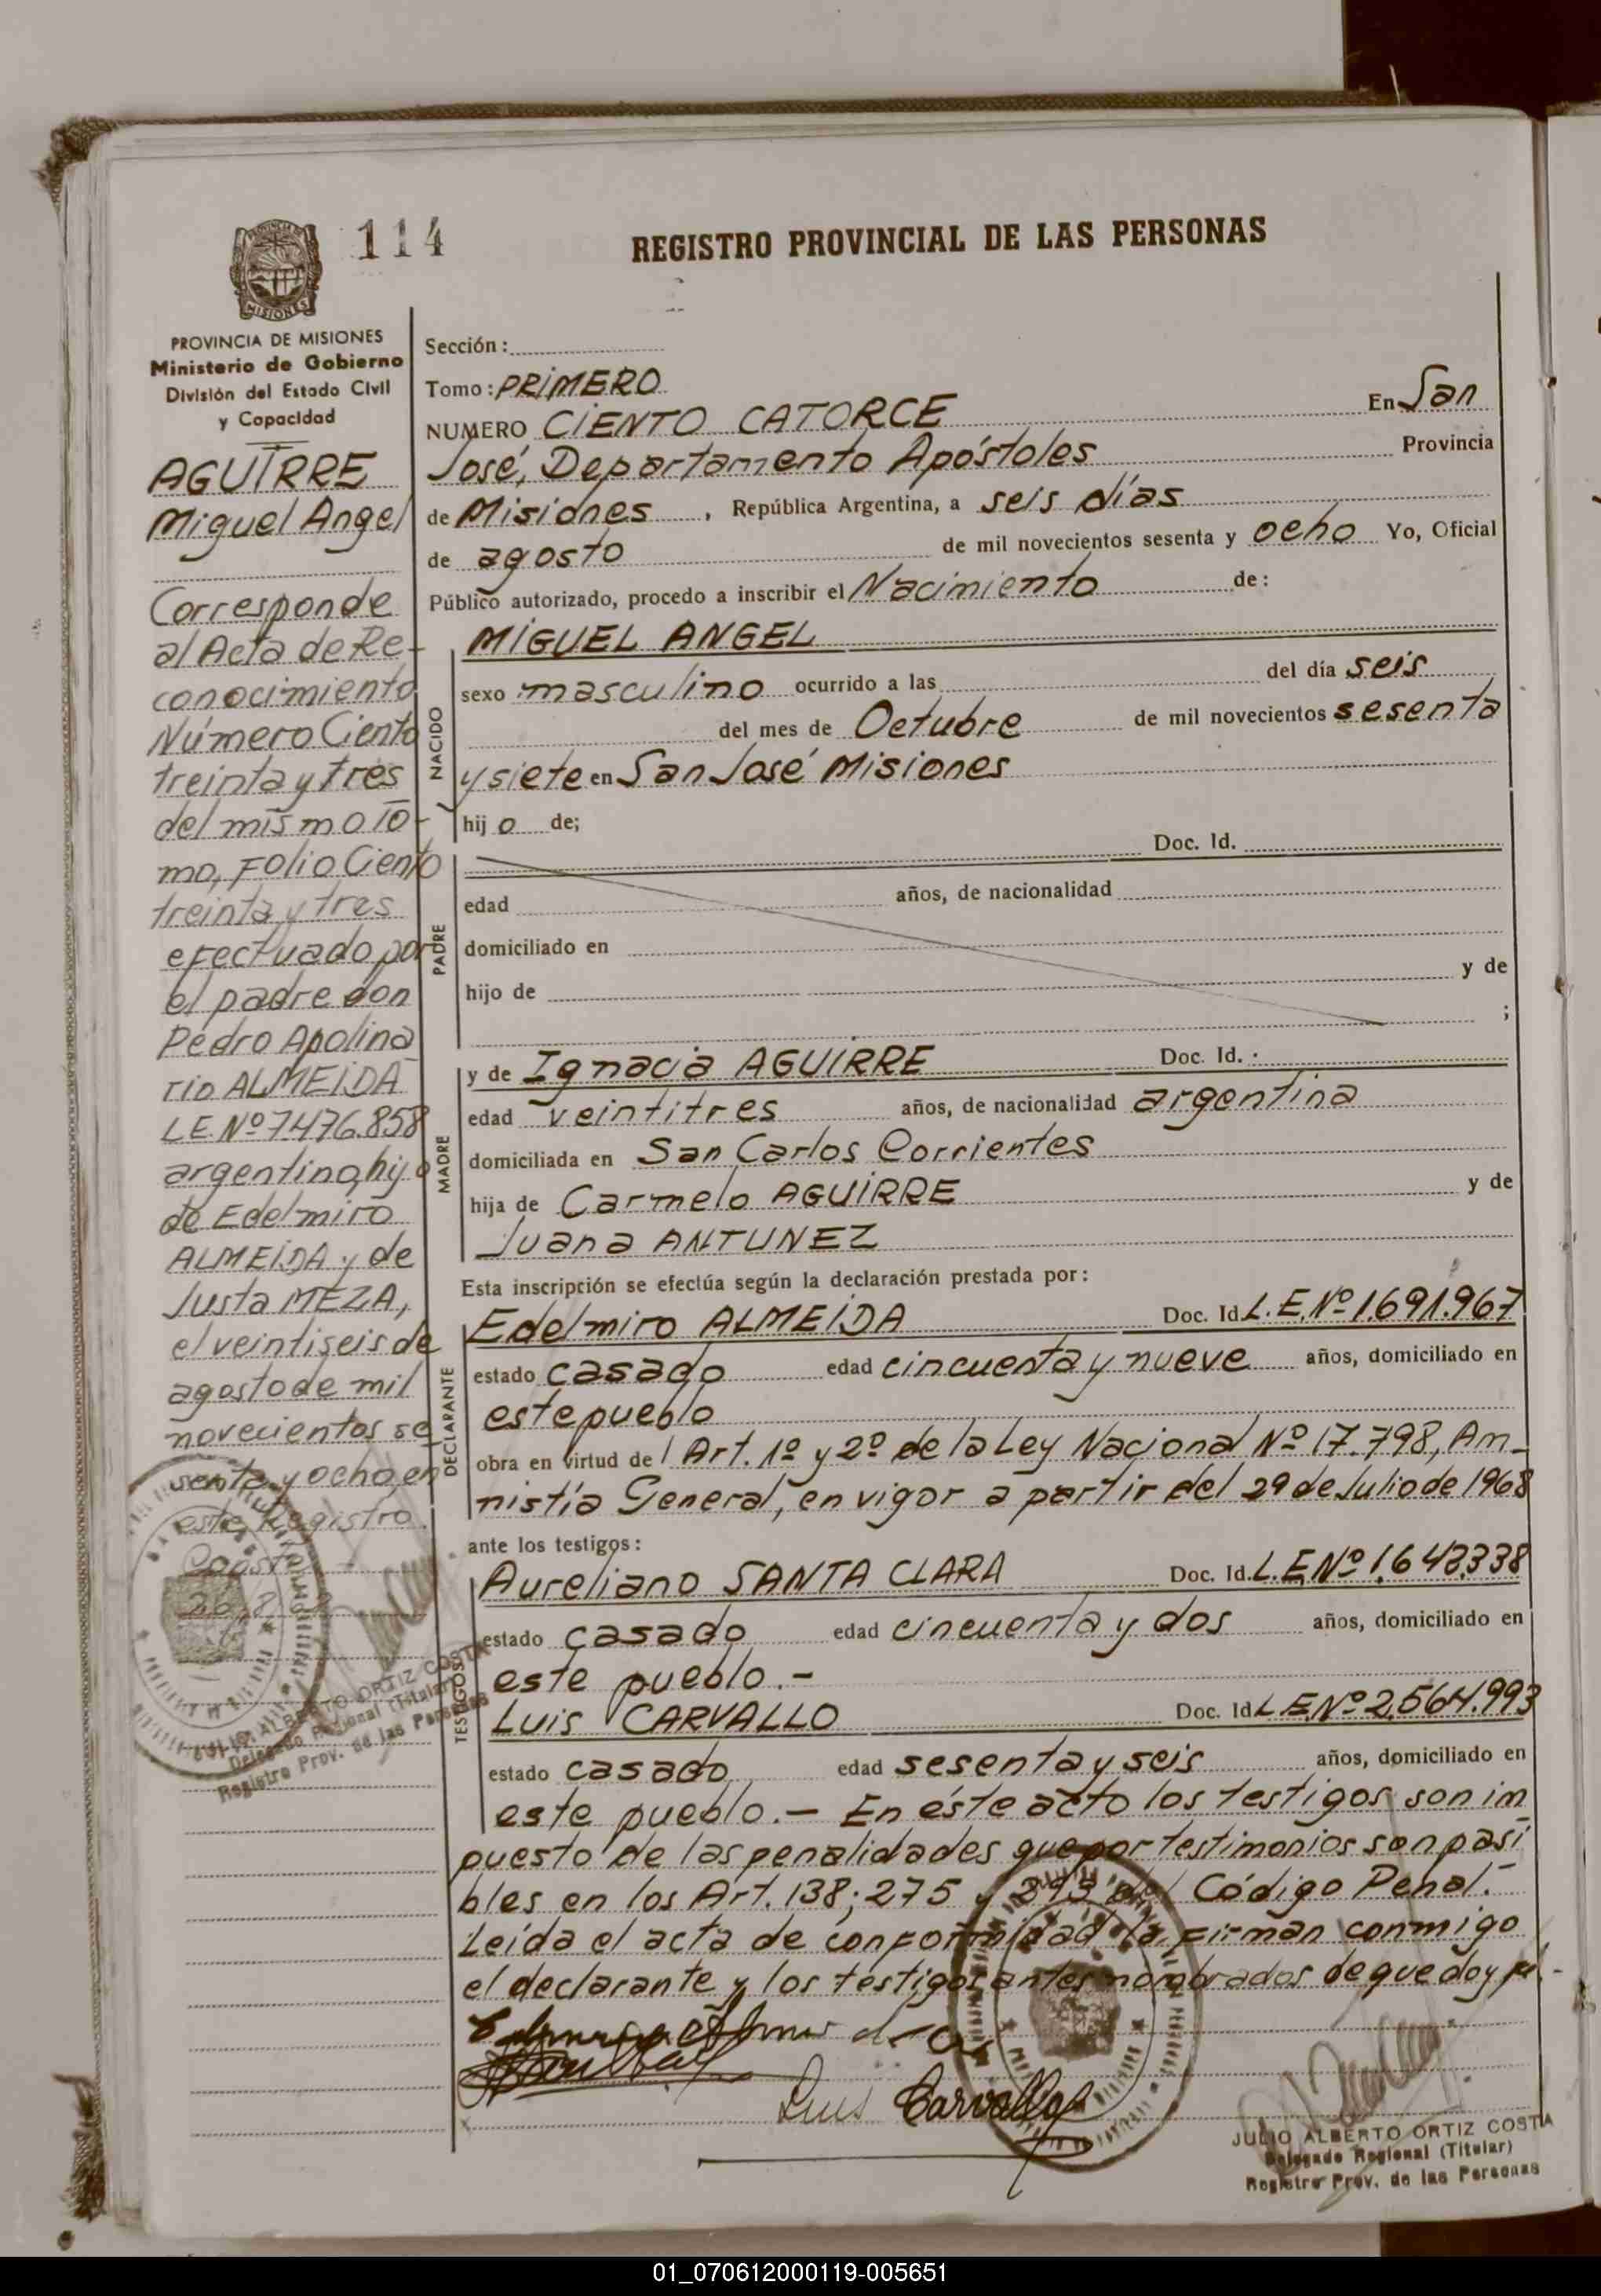 114
REGISTRO PROVINCIAL DE LAS PERSONAS
MISIONES
PROVINCIA DE MISIONES
Ministerio de Gobierno
División del Estado Civil
y Capacidad
AGUIRRE
Miguel Angel
Corresponde
al Acta de Re-
conocimiento
Número Ciento
treinta y tres
del mismo To-
mo, Folio Ciento
treinta y tres
efectuado por
el padre don
Pedro Apolina
rio ALMEIDA
L.E. Nº 7.476.858
argentino, hijo
de Edelmiro
ALMEIDA y de
Justa MEZA,
el veintiseis de
agosto de mil
novecientos se
senta y ocho, en
este Registro.
Agosto
JULIO ALBERTO ORTIZ COSTA
Delegado Regional (Titular)
Registro Prov. de las Personas
Sección:
Tomo: PRIMERO
NUMERO CIENTO CATORCE En San
José, Departamento Apóstoles Provincia
de Misiones, República Argentina, a seis días
de agosto de mil novecientos sesenta y ocho Yo, Oficial
Público autorizado, procedo a inscribir el Nacimiento de:
NACIDO
MIGUEL ANGEL
sexo masculino ocurrido a las del día seis
del mes de Octubre de mil novecientos sesenta
y siete en San José Misiones
hijo de;
PADRE
Doc. Id.
edad años, de nacionalidad
domiciliado en
hijo de y de
;
MADRE
y de Ignacia AGUIRRE Doc. Id.
edad veintitres años, de nacionalidad argentina
domiciliada en San Carlos Corrientes
hija de Carmelo AGUIRRE y de
Juana ANTUNEZ
Esta inscripción se efectúa según la declaración prestada por:
DECLARANTE
Edelmiro ALMEIDA Doc. Id. L.E. Nº 1.691.967
estado casado edad cincuenta y nueve años, domiciliado en
este pueblo
obra en virtud del Art. 1º y 2º de la Ley Nacional Nº 17.798, Am-
nistía General, en vigor a partir del 29 de Julio de 1968
ante los testigos:
TESTIGOS
Aureliano SANTA CLARA Doc. Id. L.E. Nº 1.643.338
estado casado edad cincuenta y dos años, domiciliado en
este pueblo.-
Luis CARVALLO Doc. Id. L.E. Nº 2.564.993
estado casado edad sesenta y seis años, domiciliado en
este pueblo.- En éste acto los testigos son im
puesto de las penalidades que por testimonios son pasi
bles en los Art. 138; 275 y 293 del Código Penal.-
Leída el acta de conformidad la firman conmigo
el declarante y los testigos antes nombrados de que doy fé.-
Luis Carvallo
JULIO ALBERTO ORTIZ COSTA
Delegado Regional (Titular)
Registro Prov. de las Personas
01_070612000119-005651